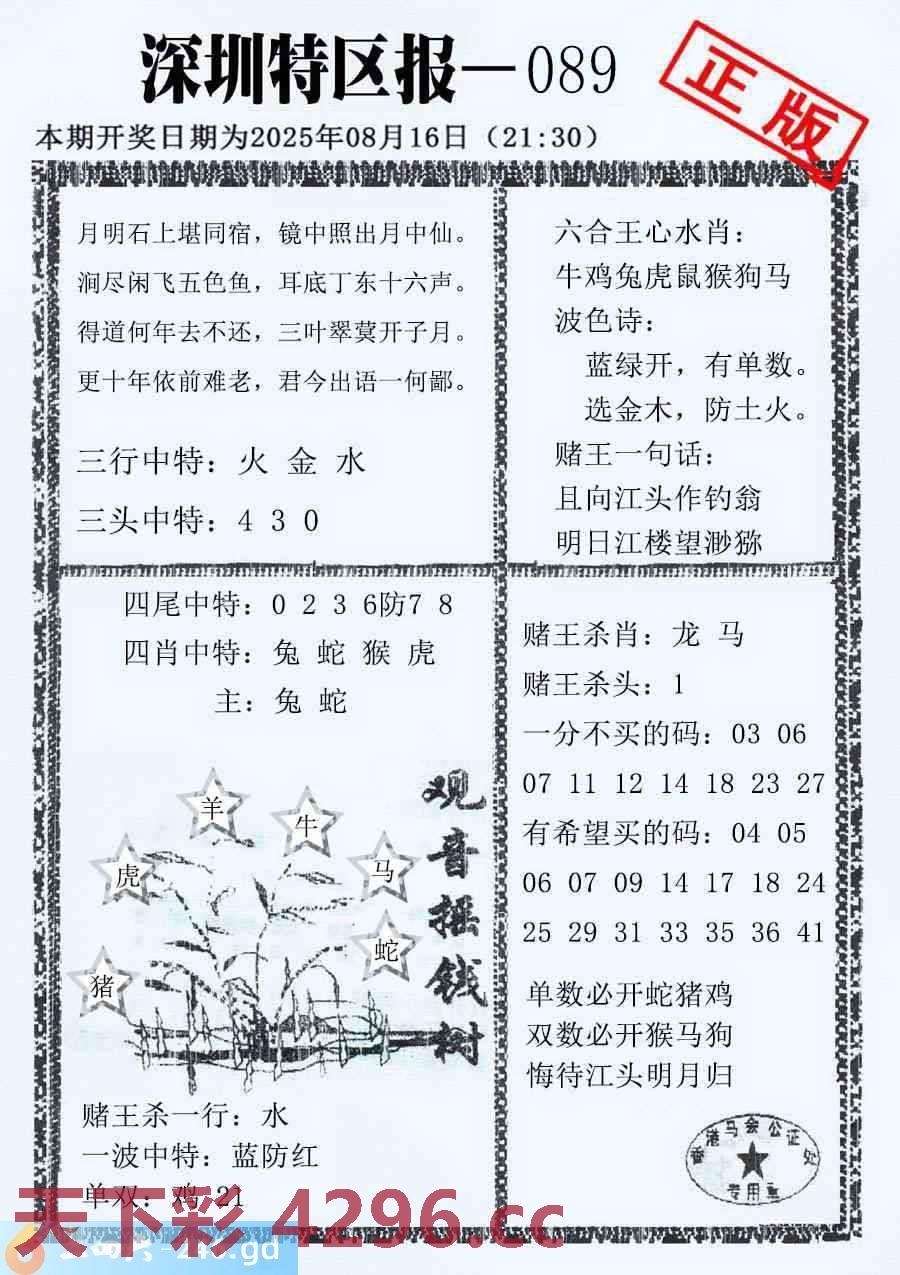 深圳特区报—089
正版
本期开奖日期为2025年08月16日（21:30）
月明石上堪同宿，镜中照出月中仙。
涧尽闲飞五色鱼，耳底丁东十六声。
得道何年去不还，三叶翠蓂开子月。
更十年依前难老，君今出语一何鄙。
三行中特：火 金 水
三头中特：4 3 0
六合王心水肖：
牛鸡兔虎鼠猴狗马
波色诗：
蓝绿开，有单数。
选金木，防土火。
赌王一句话：
且向江头作钓翁
明日江楼望渺猕
四尾中特：0 2 3 6防7 8
四肖中特：兔 蛇 猴 虎
主：兔 蛇
羊
牛
虎
马
蛇
猪
观音摇钱树
赌王杀一行：水
一波中特：蓝防红
单双：鸡 21
赌王杀肖：龙 马
赌王杀头：1
一分不买的码：03 06
07 11 12 14 18 23 27
有希望买的码：04 05
06 07 09 14 17 18 24
25 29 31 33 35 36 41
单数必开蛇猪鸡
双数必开猴马狗
悔待江头明月归
香港马会公证处
专用章
天下彩 4296.cc
246.gd